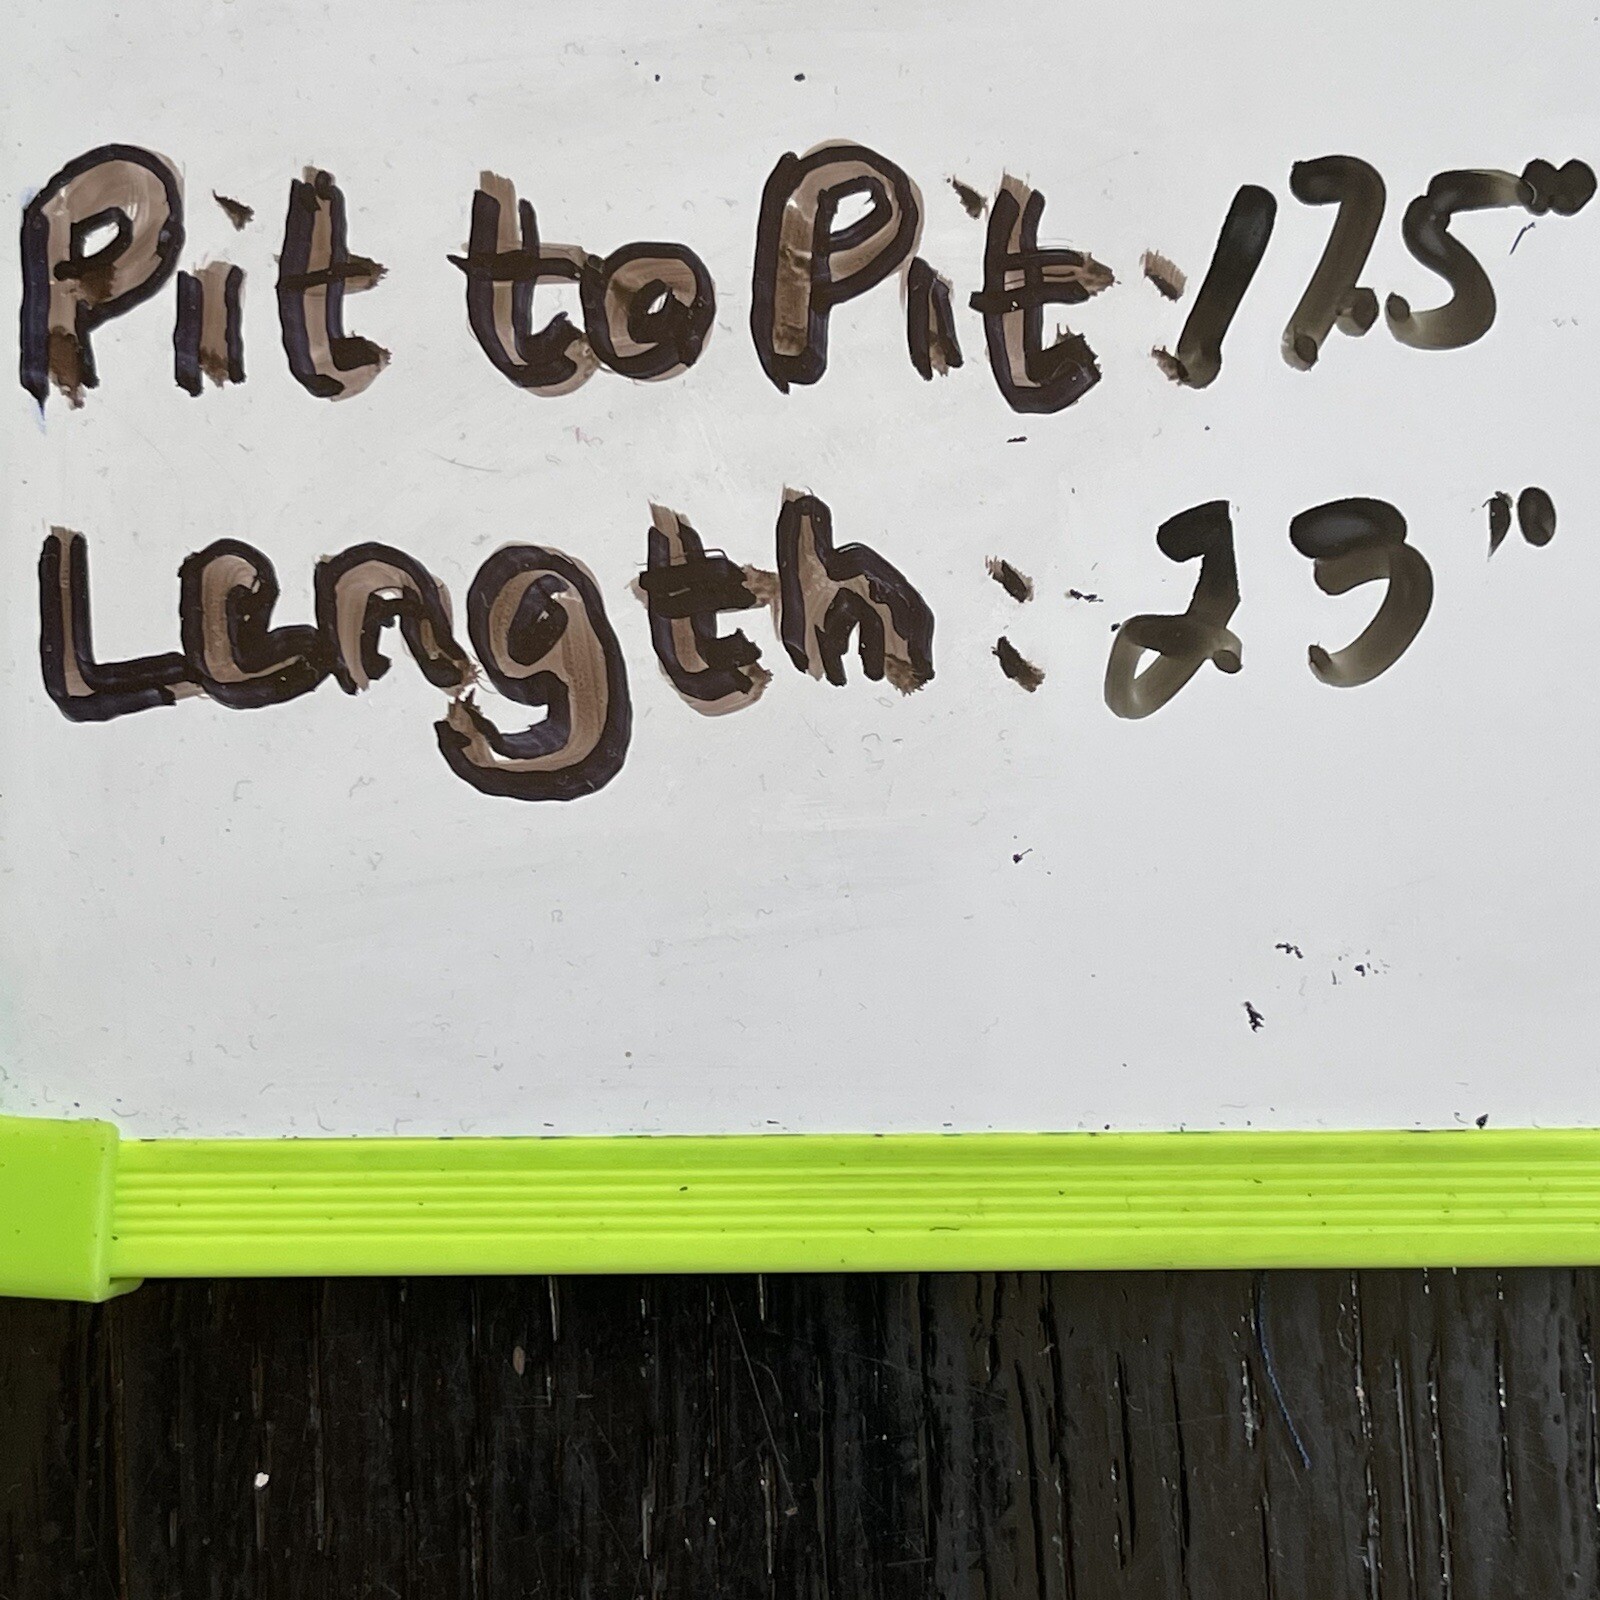 Pit to Pit: 17.5"
Length: 23"